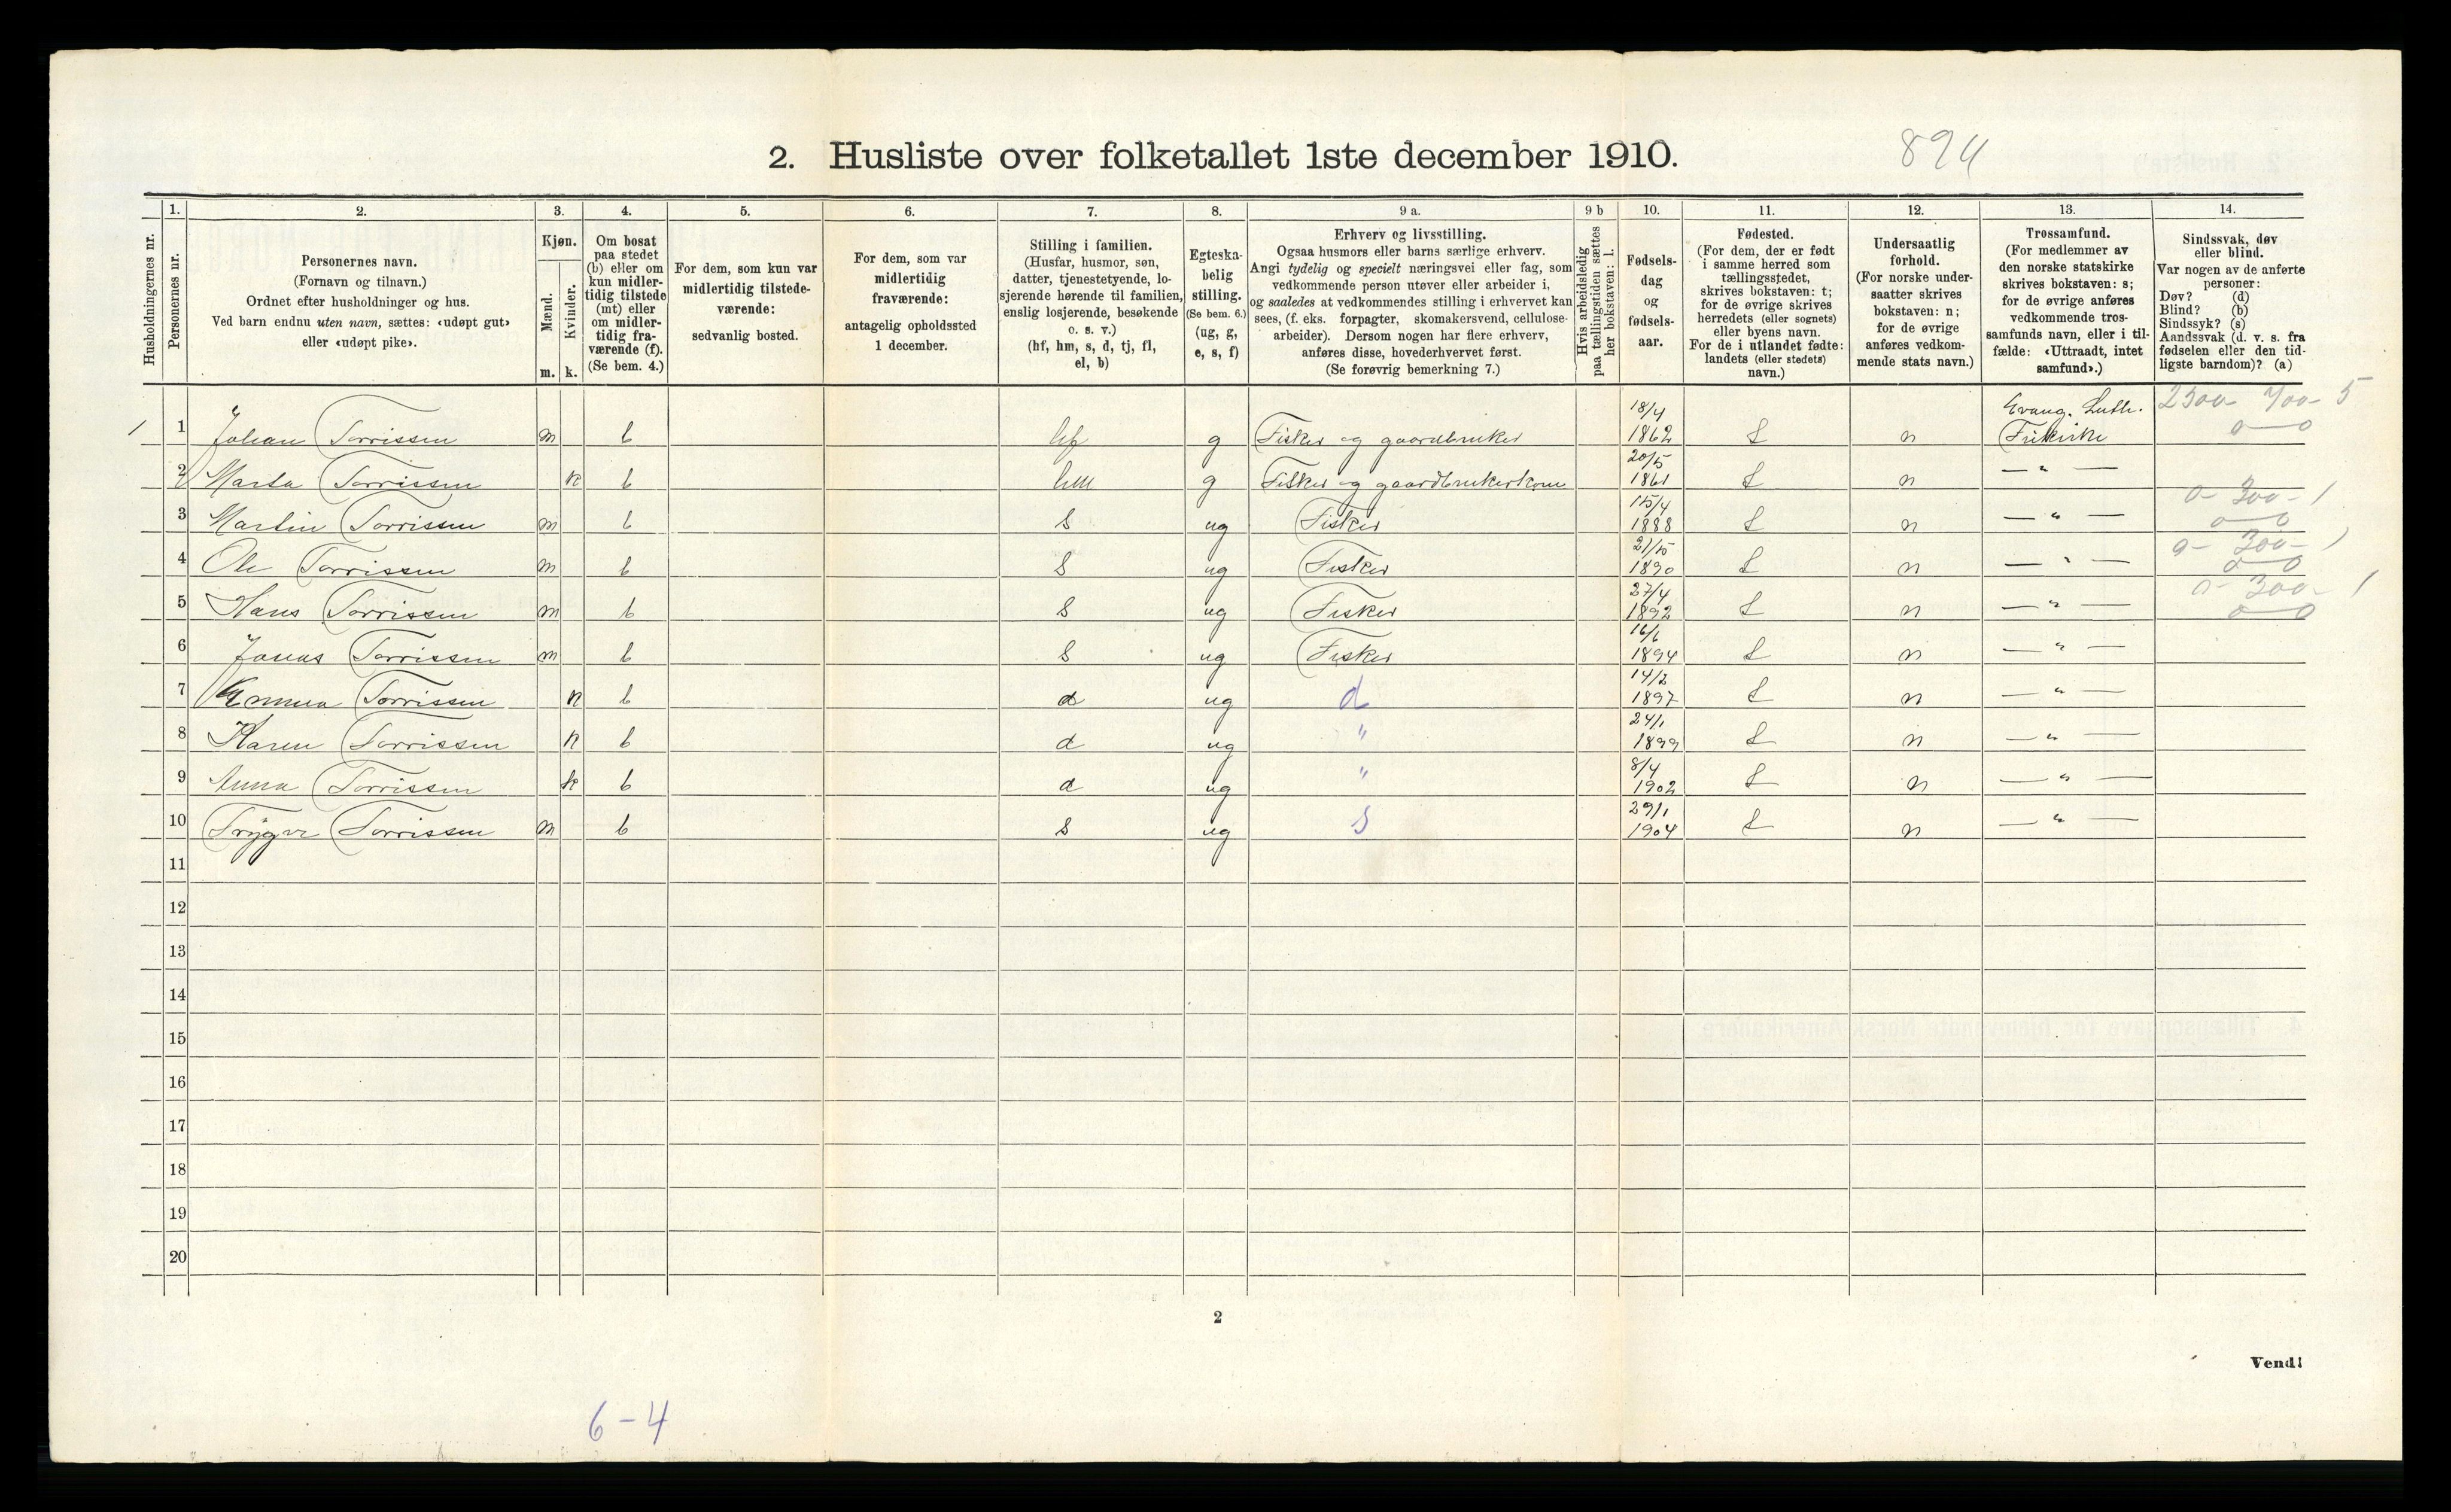 2. Husliste over folketallet 1ste december 1910.
894
1. 2. 3. 4. 5. 6. 7. 8. 9 a. 9 b 10. 11. 12. 13. 14.
Husholdningernes nr.
Personernes nr.
Personernes navn.
(Fornavn og tilnavn.)
Ordnet efter husholdninger og hus.
Ved barn endnu uten navn, sættes: «udøpt gut»
eller «udøpt pike».
Kjøn.
Mænd.
Kvinder.
m. k.
Om bosat
paa stedet
(b) eller om
kun midler-
tidig tilstede
(mt) eller
om midler-
tidig fra-
værende (f).
(Se bem. 4.)
For dem, som kun var
midlertidig tilstede-
værende:
sedvanlig bosted.
For dem, som var
midlertidig
fraværende:
antagelig opholdssted
1 december.
Stilling i familien.
(Husfar, husmor, søn,
datter, tjenestetyende, lo-
sjerende hørende til familien,
enslig losjerende, besøkende
o. s. v.)
(hf, hm, s, d, tj, fl,
el, b)
Egteska-
belig
stilling.
(Se bem. 6.)
(ug, g,
e, s, f)
Erhverv og livsstilling.
Ogsaa husmors eller barns særlige erhverv.
Angi tydelig og specielt næringsvei eller fag, som
vedkommende person utøver eller arbeider i,
og saaledes at vedkommendes stilling i erhvervet kan
sees, (f. eks. forpagter, skomakersvend, cellulose-
arbeider). Dersom nogen har flere erhverv,
anføres disse, hovederhvervet først.
(Se forøvrig bemerkning 7.)
Hvis arbeidsledig
paa tællingstiden sættes
her bokstaven: l.
Fødsels-
dag
og
fødsels-
aar.
Fødested.
(For dem, der er født
i samme herred som
tællingsstedet,
skrives bokstaven: t;
for de øvrige skrives
herredets (eller sognets)
eller byens navn.
For de i utlandet fødte:
landets (eller stedets)
navn.)
Undersaatlig
forhold.
(For norske under-
saatter skrives
bokstaven: n;
for de øvrige
anføres vedkom-
mende stats navn.)
Trossamfund.
(For medlemmer av
den norske statskirke
skrives bokstaven: s;
for de øvrige anføres
vedkommende tros-
samfunds navn, eller i til-
fælde: «Uttraadt, intet
samfund».)
Sindssvak, døv
eller blind.
Var nogen av de anførte
personer:
Døv? (d)
Blind? (b)
Sindssyk? (s)
Aandssvak (d. v. s. fra
fødselen eller den tid-
ligste barndom)? (a)
18/4 Evang. Luth. 2300- 700- 5
1 1 Johan Torrissen m b hf g Fisker og gaardbruker 1862 t n Frikirke 0 — 0
20/5
2 Marta Torrissen k b hm g Fisker og gaardbrukerkone 1861 t n — " —
15/4 0- 300- 1
3 Martin Torrissen m b s ug Fisker 1888 t n — " — 0 — 0
0- 300- 1
4 Ole Torrissen m b s ug Fisker 1890 t n — " — 0 — 0
27/4 0- 300- 1
5 Hans Torrissen m b s ug Fisker 1892 t n — " — 0 — 0
16/6
6 Jonas Torrissen m b s ug Fisker 1894 t n — " —
14/2
7 Emma Torrissen k b d ug d 1897 t n — " —
24/1
8 Karen Torrissen k b d ug " 1899 t n — " —
8/4
9 Anna Torrissen k b d ug " 1902 t n — " —
29/1
10 Trygve Torrissen m b s ug s 1904 t n — " —
11
12
13
14
15
16
17
18
19
20
2
Vend!
6-4